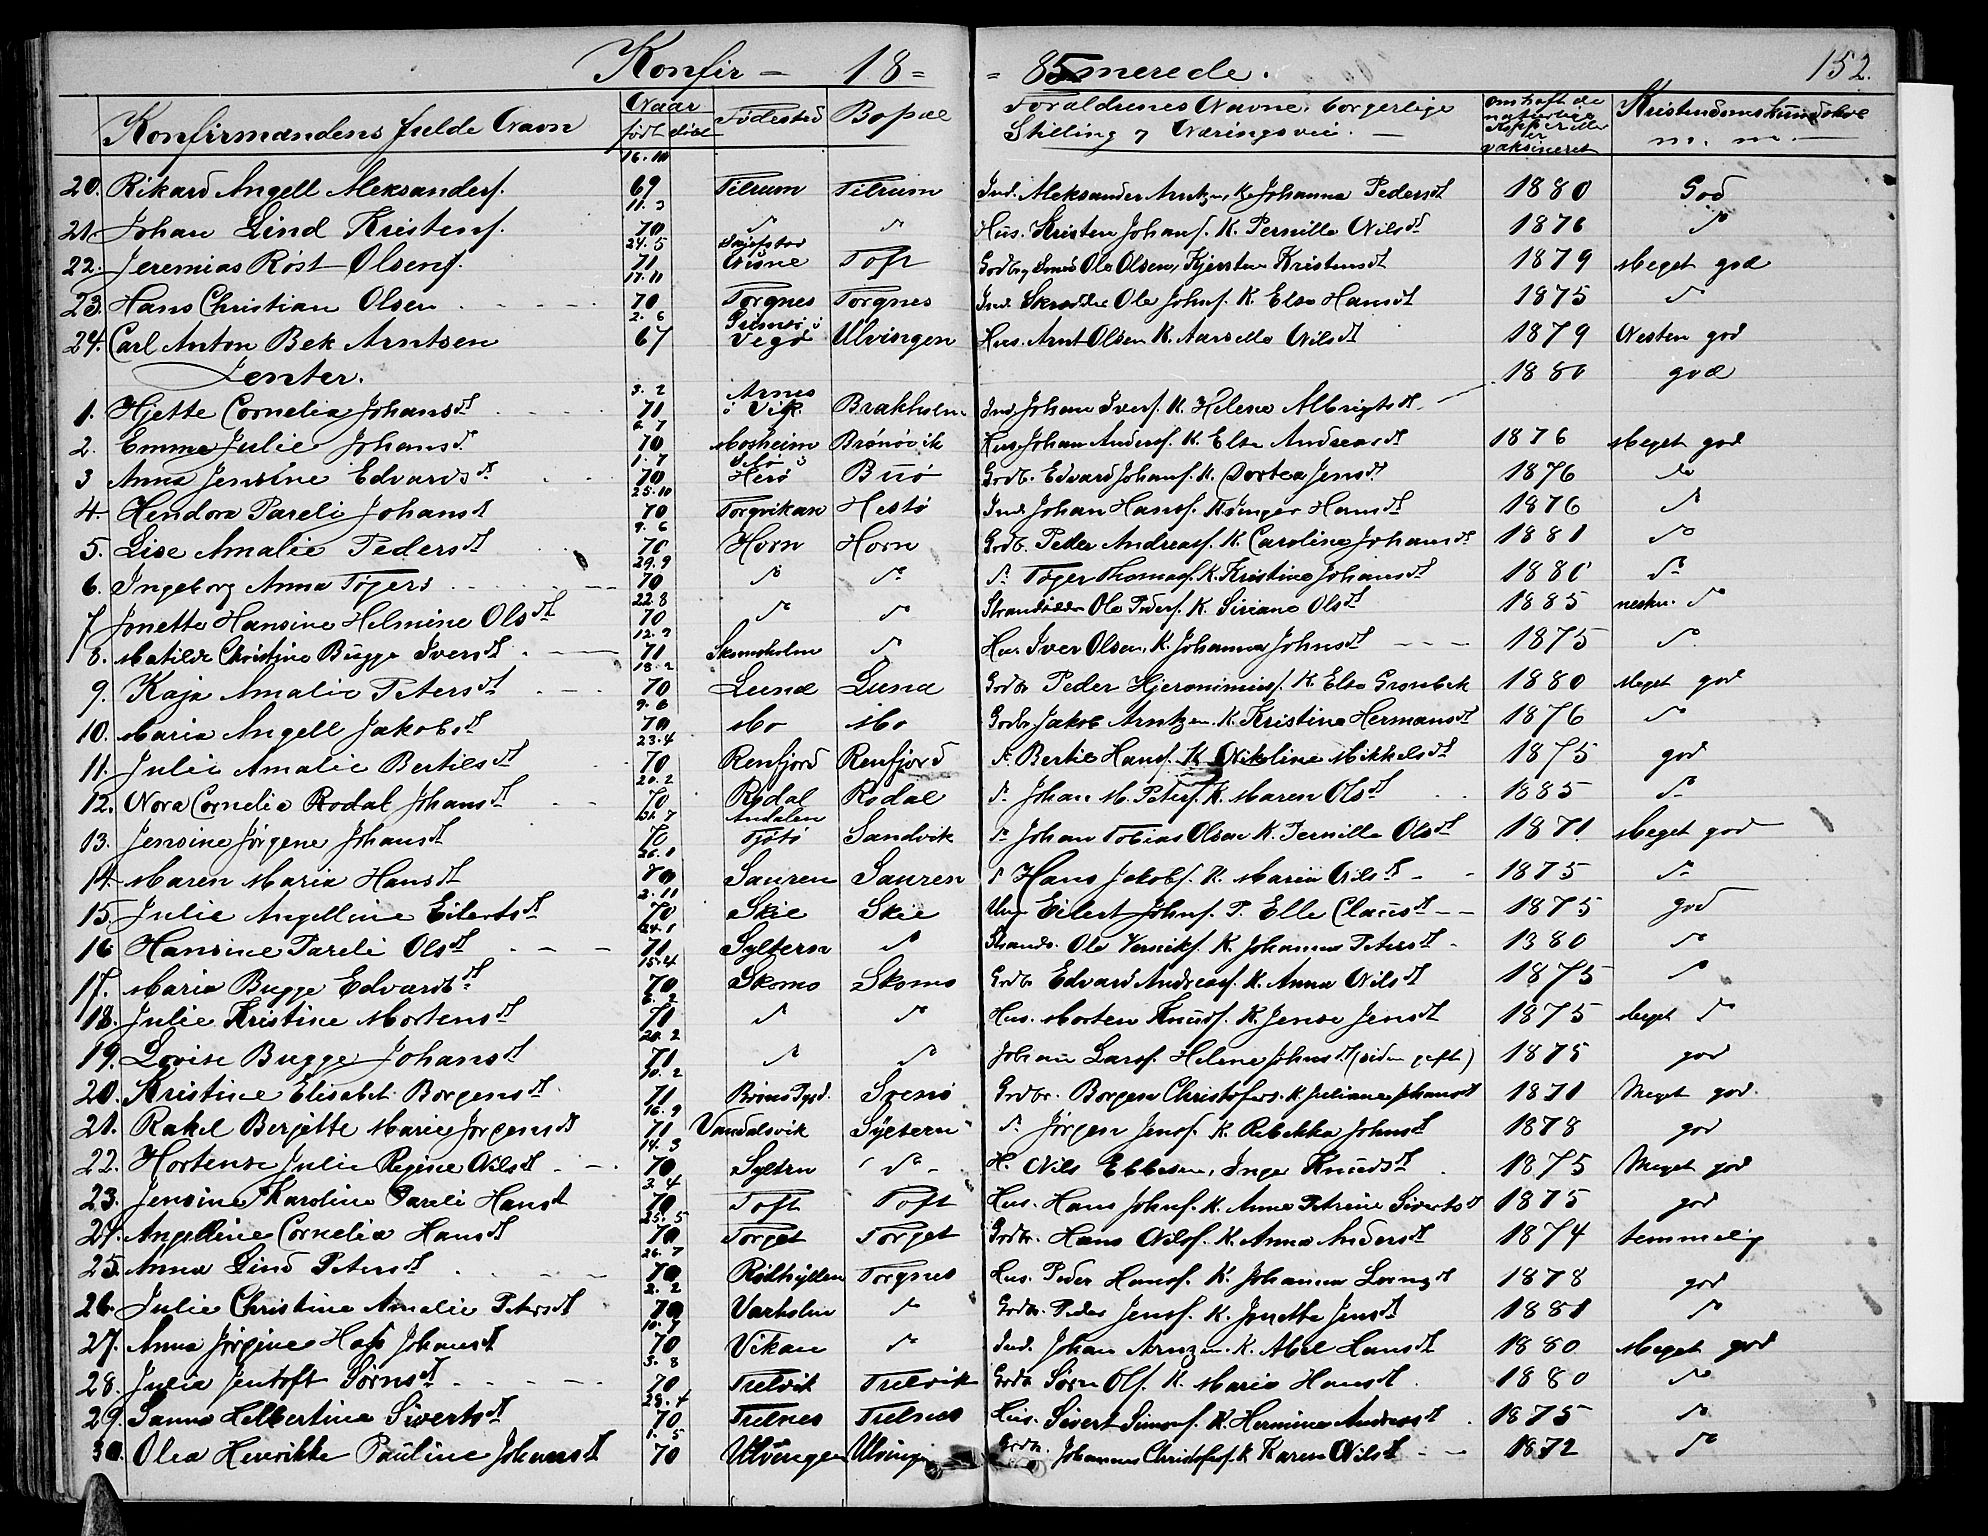 Konfir - 18 = = 85 merede. 152.
Konfirmandens fulde Navn | Naar født døbt | Fødested | Bopæl | Foraldrenes Navne, borgerlige Stilling og Næringsvei. | om haft de naturlige Kopper eller er vaksineret | Kristendomskundskab m. m.
20. Rikard Angell Aleksanders. | 16.10 69 | Tilrum | Tilrum | Ind. Aleksander Arntzen, K. Johanna Pedersdt | 1880 | God
21. Johan Lind Kristens. | 11.3 70 | do | do | Hus. Kristen Johans. K. Pernille Nilsdt | 1876 | do
22. Jeremias Røst Olsens. | 24.5 71 | Visne | Toft | Godbr. Smed Ole Olsen, Kjersten Kristensdt | 1879 | Meget god
23. Hans Christian Olsen | 17.11 70 | Torgnes | Torgnes | Ind. Skrædder Ole Johns. K. Else Hansdt | 1875 | do
24. Carl Anton Bek Arntsen | 2.6 67 | Vegø | Ulvingen | Hus. Arnt Olsen K. Nilsdt | 1879 | Nesten god
Jenter.
1. Hjette Cornelia Johansdt | 3.2 71 | Arnes i Vik | Brakholm | Ind. Johan Ivers. K. Helena Albrigtsdt | 1880 | god
2. Emma Julie Johansd. | 6.7 70 | Mosheim | Brønøvik | Hus. Johan Anders. K. Else Andreasdt | 1876 | Meget god
3 Anna Jensine Edvardsdt | 1.7 70 | Herø | Buø | Godb. Edvard Johans. K. Dortea Jensdt | 1876 | do
4. Hendora Pareli Johansdt | 25.10 70 | Torgvikan | Hestø | Ind. Johan Hanss. K. Inger Hansdt | 1876 | do
5. Lise Amalie Pedersdt | 9.6 70 | Horn | Horn | Grdb. Peder Andreass. K. Caroline Johansdt | 1881 | do
6. Ingeborg Anna Tøgers | 29.9 70 | do | do | do Tøger Thomass. K. Kristine Johansdt | 1880 | do
7 Jonette Hansine Helmine Olsdt | 22.8 70 | do | do | Strandsidder Ole Peders. K. Siriane Olsdt | 1885 | nesten do
8. Matilde Christine Bugge Iversdt | 12.9 71 | Skomoholm | do | Hus. Iver Olsen, K. Johanna Johnsdt | 1875 | do
9. Kaja Amalie Petersdt | 18.2 70 | Lund | Lund | Grdbr Peder Hjeronimius. K. Else Gronbek | 1880 | Meget god
10. Maria Angell Jakobsdt | 9.6 70 | Mo | Mo | Grdbr Jakob Arntzen. K. Kristine Hermansdt | 1876 | do
11. Julie Amalie Bertilsdt | 23.4 70 | Renfjord | Renfjord | do Bertil Hans. K. Nikoline Mikkelsdt | 1875 | god
12. Nora Cornelia Rodal Johansdt | 20.2 70 | Rodal | Rodal | do Johan M. Peters. K. Maren Olsdt | 1885 | do
13. Jensine Jørgene Johansdt | 31.7 70 | Andalen Tjøtø | Sandvik | do Johan Tobias Olsen K. Pernille Olsdt | 1871. | Meget god
14. Maren Maria Hansdt | 26.1 70 | Sauren | Sauren | do Hans Jakobs. K. Maria Nilsdt | 1875 | do
15. Julie Angelline Eilertsdt | 2.11 70 | Skie | Skie | Ung. Eilert Johns. P. Elle Clausdt | 1875 | god
16 Hansine Pareli Olsdt | 24.1 71 | Syltern | do | Strands. Ole K. Johanna Petersdt | 1880 | do
17. Maria Bugge Edvardsdt | 15.4 70 | Skomo | Skomo | Grdbr Edvard Andreass. K. Anna Nilsdt | 1875 | do
18. Julie Kristine Mortensdt | 6.2 71 | do | do | Hus. Morten Knuds. K. Jense Jensdt | 1875 | Meget do
19. Lovise Bugge Johansdt | 20.2 71 | do | do | Johan Larss. Helene Johnsdt (siden gift) | 1875 | god
20. Kristine Elisabet Borgensdt | 10.2 71 | | Svenø | Grdbr. Borgen Christofers. K. Juliane Johansdt | 1871 | Meget god.
21. Rakel Berjitte Marie Jørgensdt | 16.9 71 | Vandalsvik | Syltern | do Jørgen Jens. K. Rebekka Johnsdt | 1878 | god
22. Hortense Julie Regine Nilsdt | 14.3 70 | Syltern | do | H. Nils Ebbesen, Inger Knudsdt | 1875 | Meget god
23. Jensine Karoline Pareli Hansdt | 3.4 70 | Toft | Toft | Hus. Hans Johns. K. Anne Petrine Sivertsdt | 1875 | god
24. Angelline Cornelia Hansdt | 25.5 70 | Torget | Torget | Grdbr. Hans Nils. K. Anna Andersdt | 1874 | temmelig
25. Anna Lind Petersdt | 26.7 70 | Rødhyllen | Torgnes | Hus. Peder Hans. K. Johanna | 1878 | god
26. Julie Christine Amalie Petersdt | 2.2 70 | Varholm | do | Grdbr. Peder Jens. K. Jonetta Jensdt | 1881 | do
27. Anna Jørgine Hals Johansdt | 10.7 70 | Vikan | do | Ind. Johan Arnzen. K. Abel Hansdt | 1880 | Meget god
28. Julia Jentoft Sørnsdt | 3.8 70 | Trelvik | Trelvik | Grdbr Søren Ols. K. Maria Hansdt | 1880 | do
29. Sanna Helbertine Sivertsdt | 28.4 70 | Trelnes | Trelnes | Hus. Sivert Simons. K. Hermine Andreasdt | 1875 | do
30. Olea Henrikke Pauline Johansdt | 1.5 70 | Ulvingen | Ulvingen | Grdbr. Johannes Christofers. K. Karen Nilsdt | 1872 | do